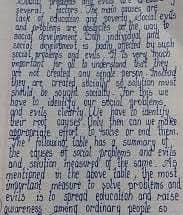 problems and evils
several factors. The main causes are
lack of education and poverty. Social evils
and problems are obstacles on the way to
social development. Both individual and
social development is badly affected by such
social problems and evils. It is very much
important for all to understand that they
are not created any single person. Instead
they are created socially. A solution must
should be sought socially. For this we
have to identify our social problems,
and evils clearly. We have to identify
their root causes. Only then can we make
appropriate effort to solve or end them.
The following table has a summary of
the causes of social problems and evils
and solution measured of the same. As
mentioned in the above table, the most
important measure to solve problems and
evils is to spread education and raise
awareness among ordinary people so